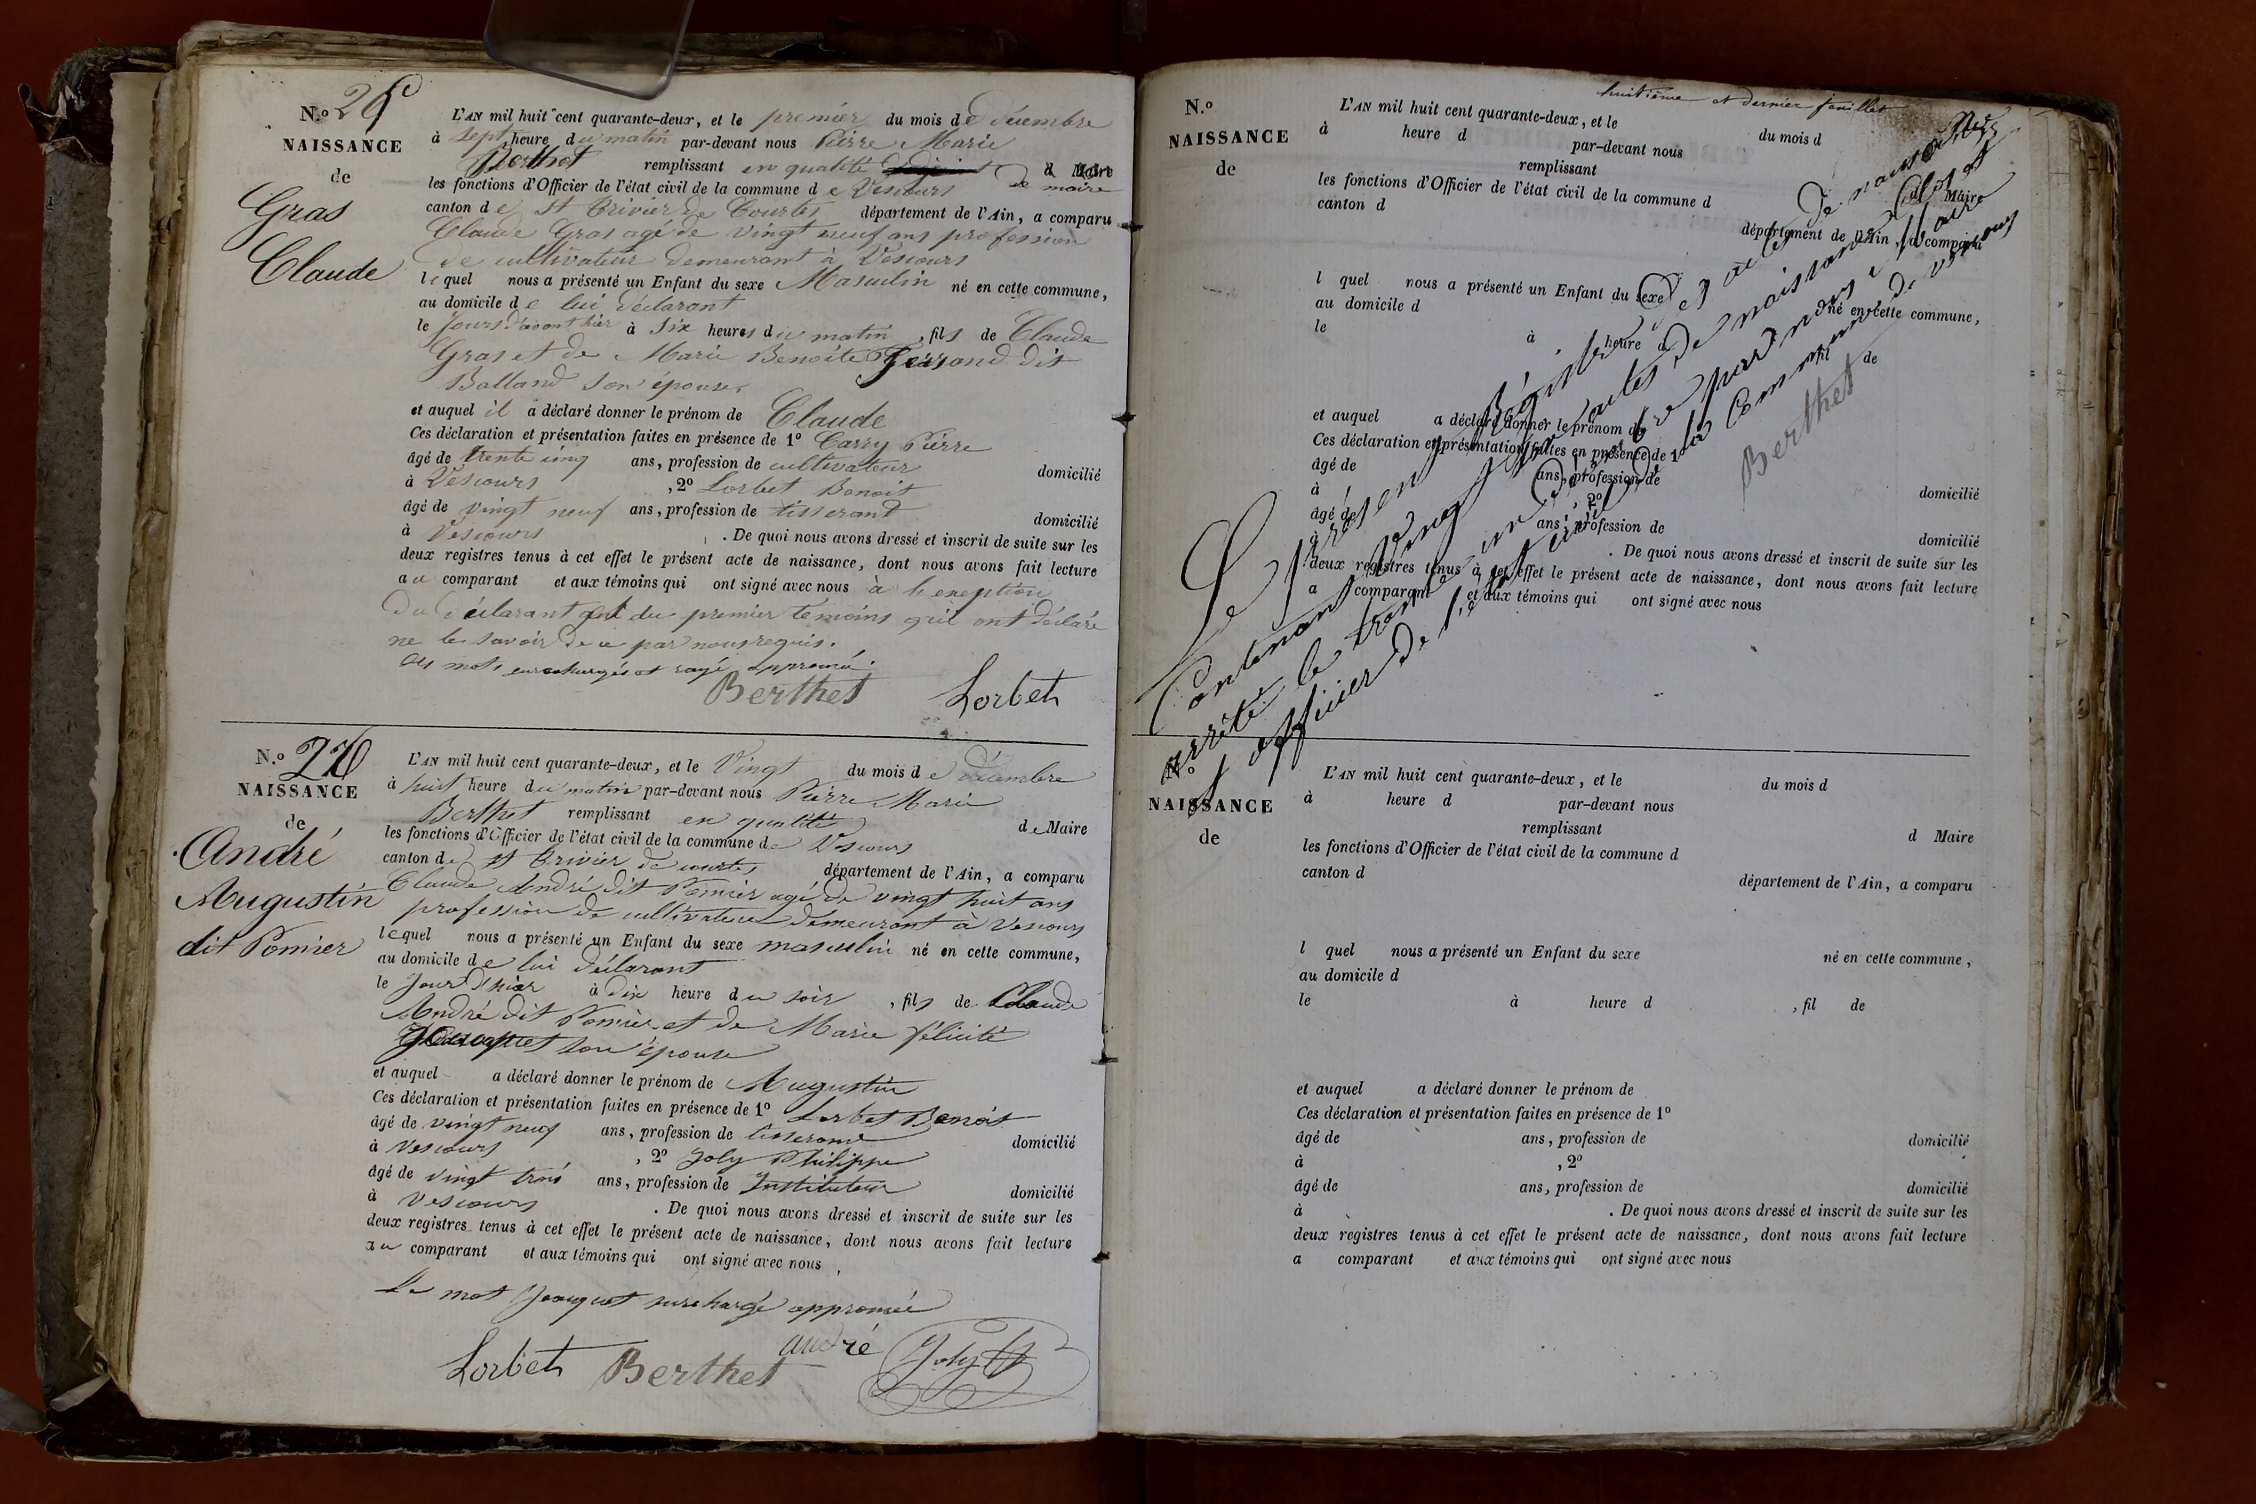 N.º 26
NAISSANCE
de
Gras
Claude
L'AN mil huit cent quarante-deux, et le premier du mois de décembre
à Sept heure du matin par-devant nous Pierre Marie
Berthet remplissant en qualité d Maire
de maire
les fonctions d'Officier de l'état civil de la commune de Vescours
canton de St Trivier de Courtes département de l'Ain, a comparu
Claude Gras agé de vingt neuf ans profession
de cultivateur demeurant à Vescours
lequel nous a présenté un Enfant du sexe Masculin né en cette commune,
au domicile de lui déclarant
le Jours d'avant hier à Six heures du matin, fils de Claude
Gras et de Marie Benoite dit
Balland son épouse.
et auquel il a déclaré donner le prénom de Claude
Ces déclaration et présentation faites en présence de 1º Carry Pierre
âgé de trente cinq ans, profession de cultivateur domicilié
à Vescours, 2º Lorbet Benoit
âgé de vingt neuf ans, profession de tisserand domicilié
à Vescours. De quoi nous avons dressé et inscrit de suite sur les
deux registres tenus à cet effet le présent acte de naissance, dont nous avons fait lecture
au comparant et aux témoins qui ont signé avec nous à l'exeption
du déclarant et du premier témoins qui ont déclaré
ne le savoir de ce par nous requis.
mots surchargés et rayé approuvé.
Berthet Lorbet
N.º 27
NAISSANCE
de
André
Augustin
dit Pomier
L'AN mil huit cent quarante-deux, et le Vingt du mois de décembre
à huit heure du matin par-devant nous Pierre Marie
Berthet remplissant en qualité de Maire
les fonctions d'Officier de l'état civil de la commune de Vescours
canton de St Trivier de courtes département de l'Ain, a comparu
Claude André dit Pomier agé de vingt huit ans
profession de cultivateur demeurant à Vescours
lequel nous a présenté un Enfant du sexe masculin né en cette commune,
au domicile de lui déclarant
le Jour d'hier à dix heure du soir, fils de Claude
André dit Pomier et de Marie félicité
son épouse
et auquel a déclaré donner le prénom de Augustin
Ces déclaration et présentation faites en présence de 1º Lorbet Benoit
âgé de vingt neuf ans, profession de tisserand domicilié
à Vescours, 2º Joly Philippe
âgé de vingt trois ans, profession de Instituteur domicilié
à Vescours. De quoi nous avons dressé et inscrit de suite sur les
deux registres tenus à cet effet le présent acte de naissance, dont nous avons fait lecture
au comparant et aux témoins qui ont signé avec nous,
Le mot surchargé approuvée
André
Lorbet Berthet Joly
huitième et dernier feuillet
N.º
NAISSANCE
de
L'AN mil huit cent quarante-deux, et le du mois d
à heure d par-devant nous
remplissant d Maire
les fonctions d'Officier de l'état civil de la commune d
canton d département de l'Ain, a comparu
l quel nous a présenté un Enfant du sexe né en cette commune,
au domicile d
le à heure d fil de
et auquel a déclaré donner le prénom de
Ces déclaration et présentation faites en présence de 1º
âgé de ans, profession de domicilié
à , 2º
âgé de ans, profession de domicilié
à . De quoi nous avons dressé et inscrit de suite sur les
deux registres tenus à cet effet le présent acte de naissance, dont nous avons fait lecture
a comparant et aux témoins qui ont signé avec nous
Le présent Régistre des actes de naissances
Contenant Vingt sept actes de naissance Clos et
arrêté le trente un Décembre par nous Maire
officier de l'état civil de la Commune de Vescours
Berthet
N.º
NAISSANCE
de
L'AN mil huit cent quarante-deux, et le du mois d
à heure d par-devant nous
remplissant d Maire
les fonctions d'Officier de l'état civil de la commune d
canton d département de l'Ain, a comparu
l quel nous a présenté un Enfant du sexe né en cette commune,
au domicile d
le à heure d , fil de
et auquel a déclaré donner le prénom de
Ces déclaration et présentation faites en présence de 1º
âgé de ans, profession de domicilié
à , 2º
âgé de ans, profession de domicilié
à . De quoi nous avons dressé et inscrit de suite sur les
deux registres tenus à cet effet le présent acte de naissance, dont nous avons fait lecture
a comparant et aux témoins qui ont signé avec nous